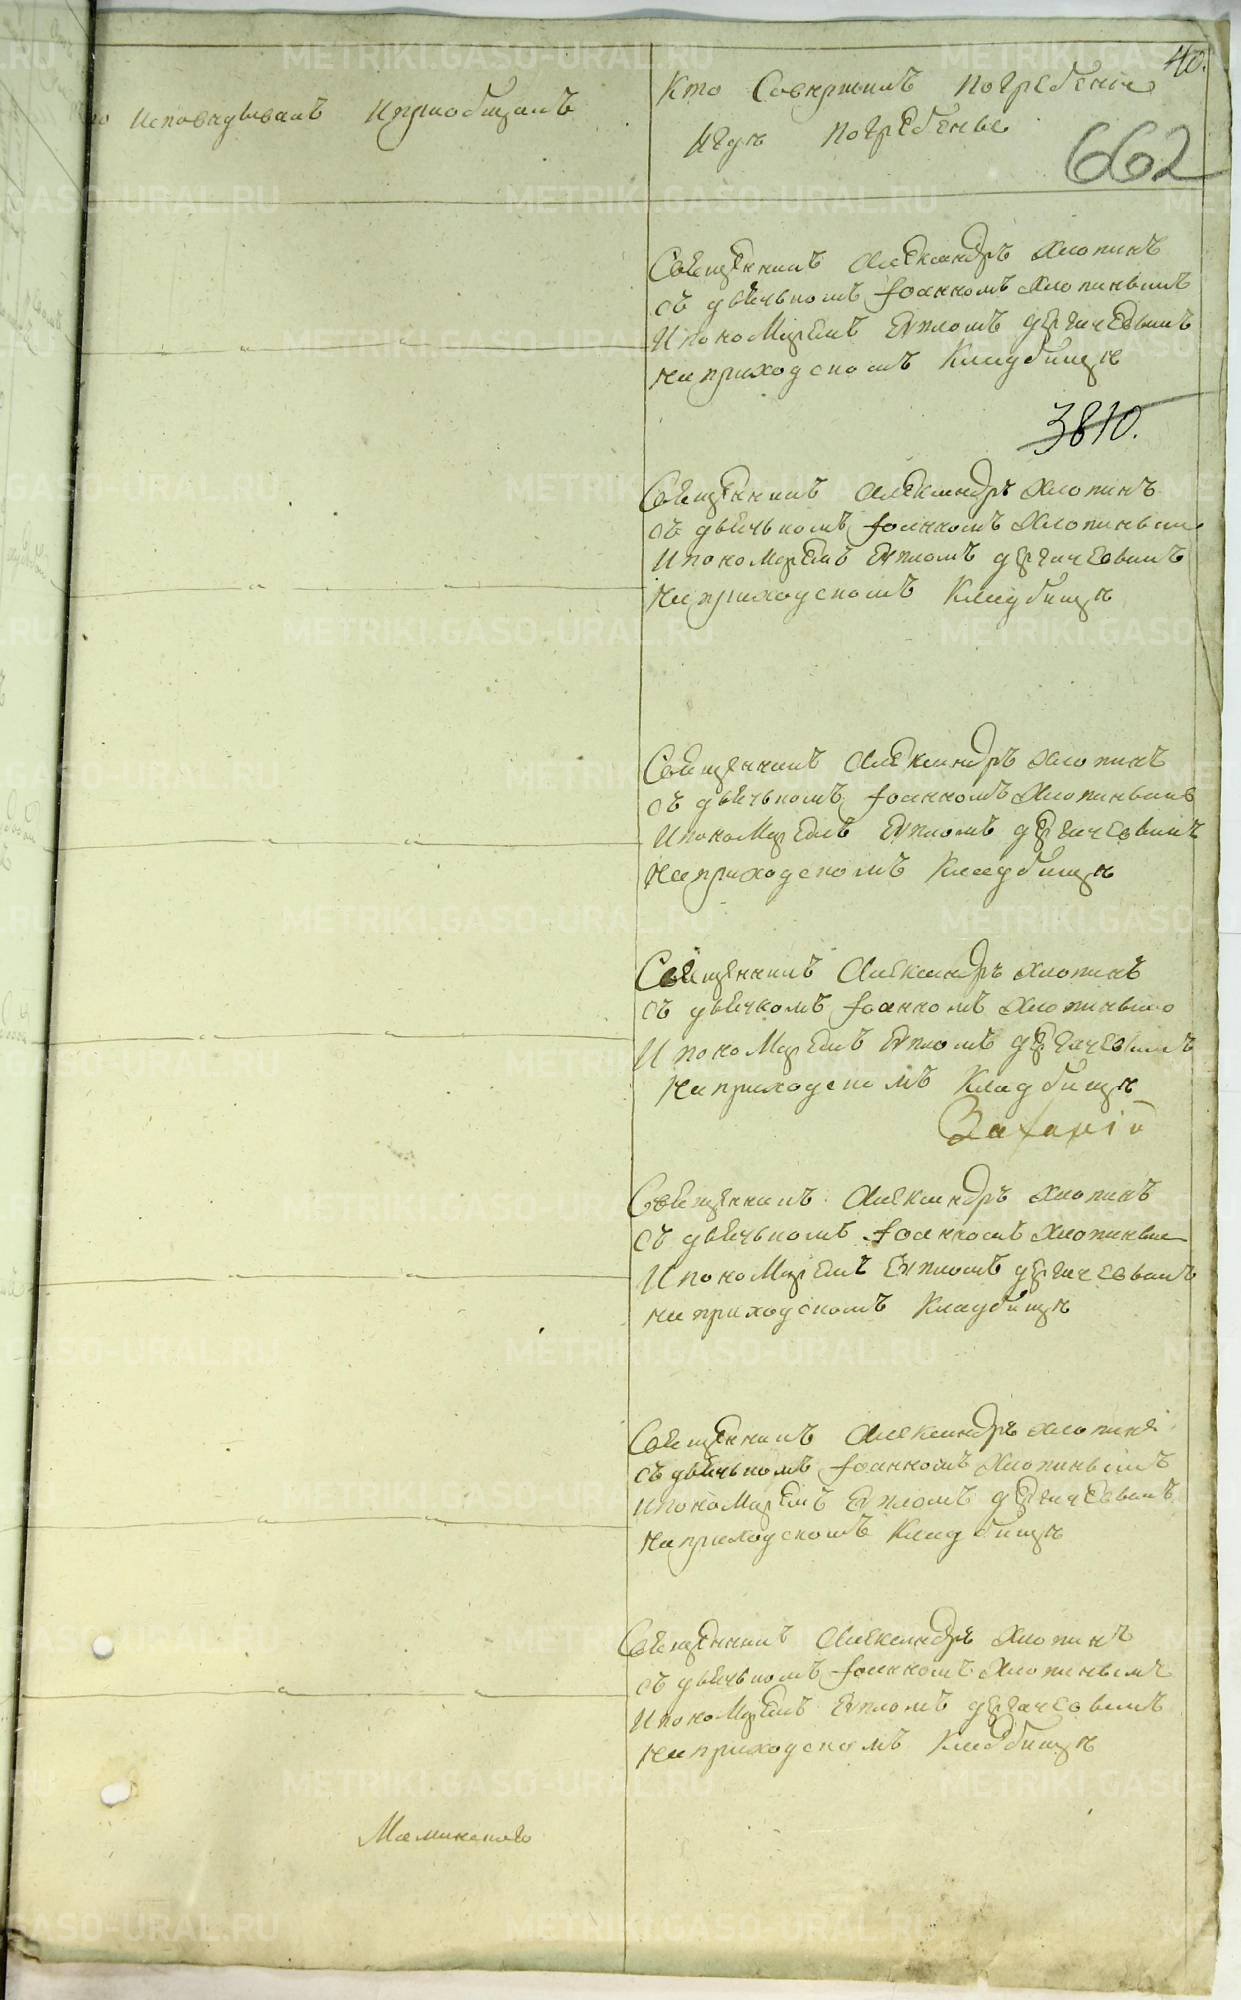 40.
Исповедывалъ Иприобщалъ
Кто Совершилъ Погребенiе
Игде Погребенъ
662
Священникъ Александръ Хлопинъ
съ дьячькомъ Iоанномъ Хлопинымъ
И пономаремъ Еvпломъ
на приходскомъ Кладбище
3810.
Священникъ Александръ Хлопинъ
съ дьячькомъ Iоанномъ Хлопиным
И пономаремъ Еvпломъ
На приходскомъ Кладбище
Священникъ Александръ Хлопинъ
съ дьячькомъ Iоанномъ Хлопинымъ
И пономаремъ Еvпломъ
На приходскомъ Кладбище
Священникъ Александръ Хлопинъ
съ дьячкомъ Iоанномъ Хлопинымъ
И пономаремъ Еvпломъ
На приходскомъ Кладбище
Захарiй
Священникъ Александръ Хлопинъ
съ дьячькомъ Iоанномъ Хлопиным
И пономаремъ Еvпломъ
на приходскомъ Кладбище
Священникъ Александръ Хлопинъ
съ дьячькомъ Iоанномъ Хлопинымъ
И пономаремъ Еvпломъ
На приходскомъ Кладбище
Священникъ Александръ Хлопинъ
съ дьячькомъ Iоанномъ Хлопинымъ
И пономаремъ Еvпломъ
На приходскомъ Кладбище
Маминского
METRIKI.GASO-URAL.RU